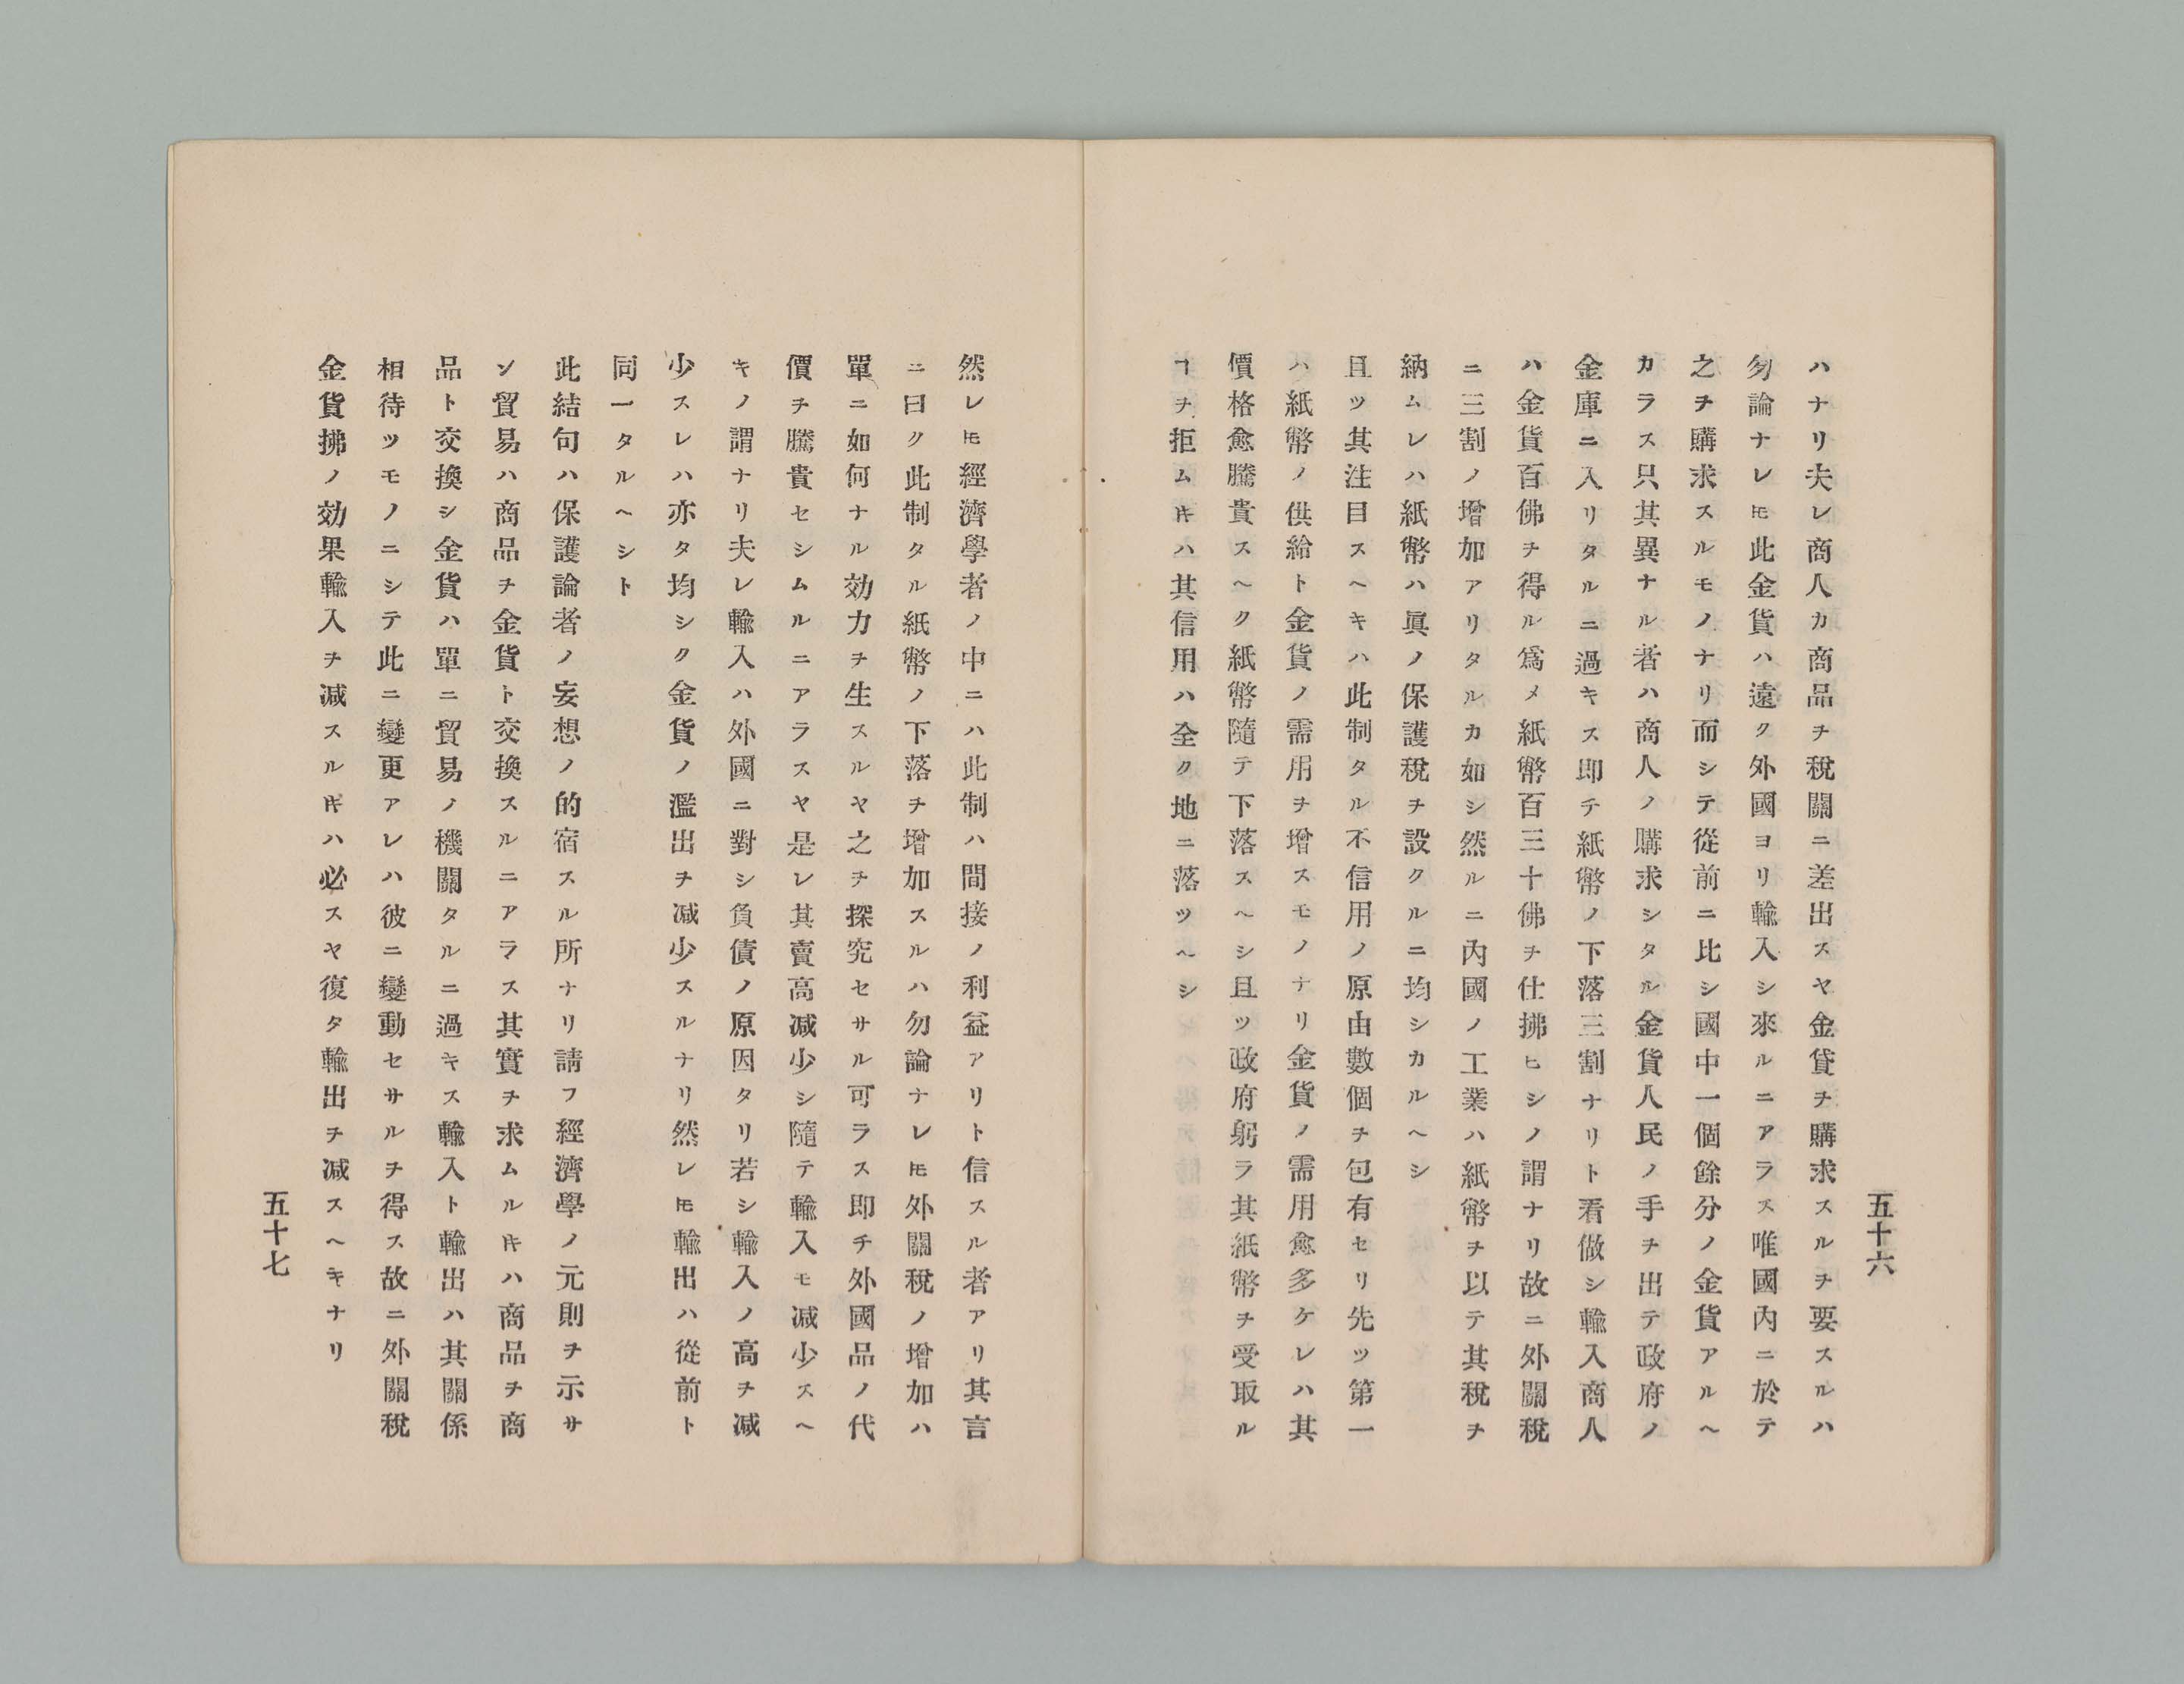 五十六
ハナリ夫レ商人カ商品ヲ稅關ニ差出スヤ金貨ヲ購求スルヲ要スルハ
勿論ナレ𪜈此金貨ハ遠ク外國ヨリ輸入シ來ルニアラス唯國內ニ於テ
之ヲ購求スルモノナリ而シテ從前ニ比シ國中一個餘分ノ金貨アルヘ
カラス只其異ナル者ハ商人ノ購求シタル金貨人民ノ手ヲ出テ政府ノ
金庫ニ入リタルニ過キス即チ紙幣ノ下落三割ナリト看做シ輸入商人
ハ金貨百佛ヲ得ル爲メ紙幣百三十佛ヲ仕拂ヒシノ謂ナリ故ニ外關稅
ニ三割ノ增加アリタルカ如シ然ルニ內國ノ工業ハ紙幣ヲ以テ其稅ヲ
納ムレハ紙幣ハ眞ノ保護稅ヲ設クルニ均シカルヘシ
且ツ其注目スヘキハ此制タル不信用ノ原由數個ヲ包有セリ先ツ第一
ハ紙幣ノ供給ト金貨ノ需用ヲ增スモノナリ金貨ノ需用愈多ケレハ其
價格愈騰貴スヘク紙幣隨テ下落スヘシ且ツ政府躬ラ其紙幣ヲ受取ル
ヿヲ拒ムキハ其信用ハ全ク地ニ落ツヘシ
然レ𪜈經濟學者ノ中ニハ此制ハ間接ノ利益アリト信スル者アリ其言
ニ曰ク此制タル紙幣ノ下落ヲ增加スルハ勿論ナレ𪜈外關稅ノ增加ハ
單ニ如何ナル効力ヲ生スルヤ之ヲ探究セサル可ラス即チ外國品ノ代
價ヲ騰貴セシムルニアラスヤ是レ其賣高减少シ隨テ輸入モ减少スヘ
キノ謂ナリ夫レ輸入ハ外國ニ對シ負債ノ原因タリ若シ輸入ノ高ヲ减
少スレハ亦タ均シク金貨ノ濫出ヲ减少スルナリ然レ𪜈輸出ハ從前ト
同一タルヘシト
此結句ハ保護論者ノ妄想ノ的宿スル所ナリ請フ經濟學ノ元則ヲ示サ
ン貿易ハ商品ヲ金貨ト交換スルニアラス其實ヲ求ムルキハ商品ヲ商
品ト交換シ金貨ハ單ニ貿易ノ機關タルニ過キス輸入ト輸出ハ其關係
相待ツモノニシテ此ニ變更アレハ彼ニ變動セサルヲ得ス故ニ外關稅
金貨拂ノ効果輸入ヲ减スルキハ必スヤ復タ輸出ヲ减スヘキナリ
五十七